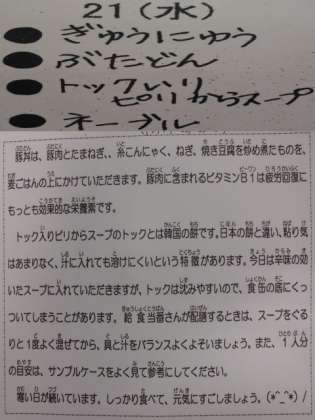 21(水)
● ぎゅうにゅう
● ぶたどん
● トックいり
ピリからスープ
● ネーブル
豚丼は、豚肉とたまねぎ、、糸こんにゃく、ねぎ、焼き豆腐を炒め煮たものを、
麦ごはんの上にかけていただきます。豚肉に含まれるビタミンB1は疲労回復に
もっとも効果的な栄養素です。
トック入りピリからスープのトックとは韓国の餅です。日本の餅と違い、粘り気
はあまりなく、汁に入れても溶けにくいという特徴があります。今日は辛味の効
いたスープに入れていただきますが、トックは沈みやすいので、食缶の底にくっ
ついてしまうことがあります。給食当番さんが配膳するときは、スープをぐる
りと1度よく混ぜてから、具と汁をバランスよくよそいましょう。また、1人分
の目安は、サンプルケースをよく見て参考にしてください。
寒い日が続いています。しっかり食べて、元気にすごしましょう。(*^_^*)/